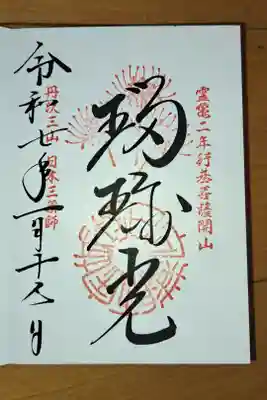 霊亀二年行基菩薩開山
瑠璃光
丹沢三山 日本三薬師
令和七年一月十九日